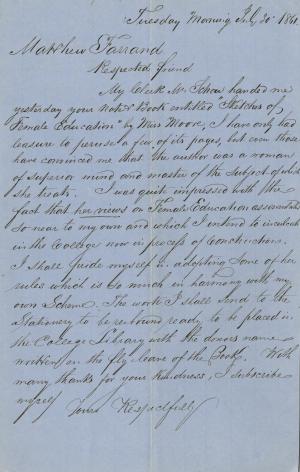 Tuesday Morning July 20th 1861.
Matthew Farrand
Respected friend
My Clerk Mr. Schou handed me
yesterday your Note & Book entitled "Sketches of
Female Education" by Miss Moore, I have only had
leasure to peruse a few of its pages, but even those
have convinced me that the author was a woman
of superior mind and master of the Subject of which
she treats. I was quit impressed with the
fact that her views on Female Education assimilates
so near to my own and which I intend to inculcate
in the College now in process of Construction.
I shall pride myself in adopting some of her
rules which is so much in harmony with my
own Scheme. The work I shall send to the
Stationery to be rebound ready to be placed in
the College Library with the donors name
written on the fly leave of the Book. With
many thanks for your Kindness, I subscribe
myself
Yours Respectfully